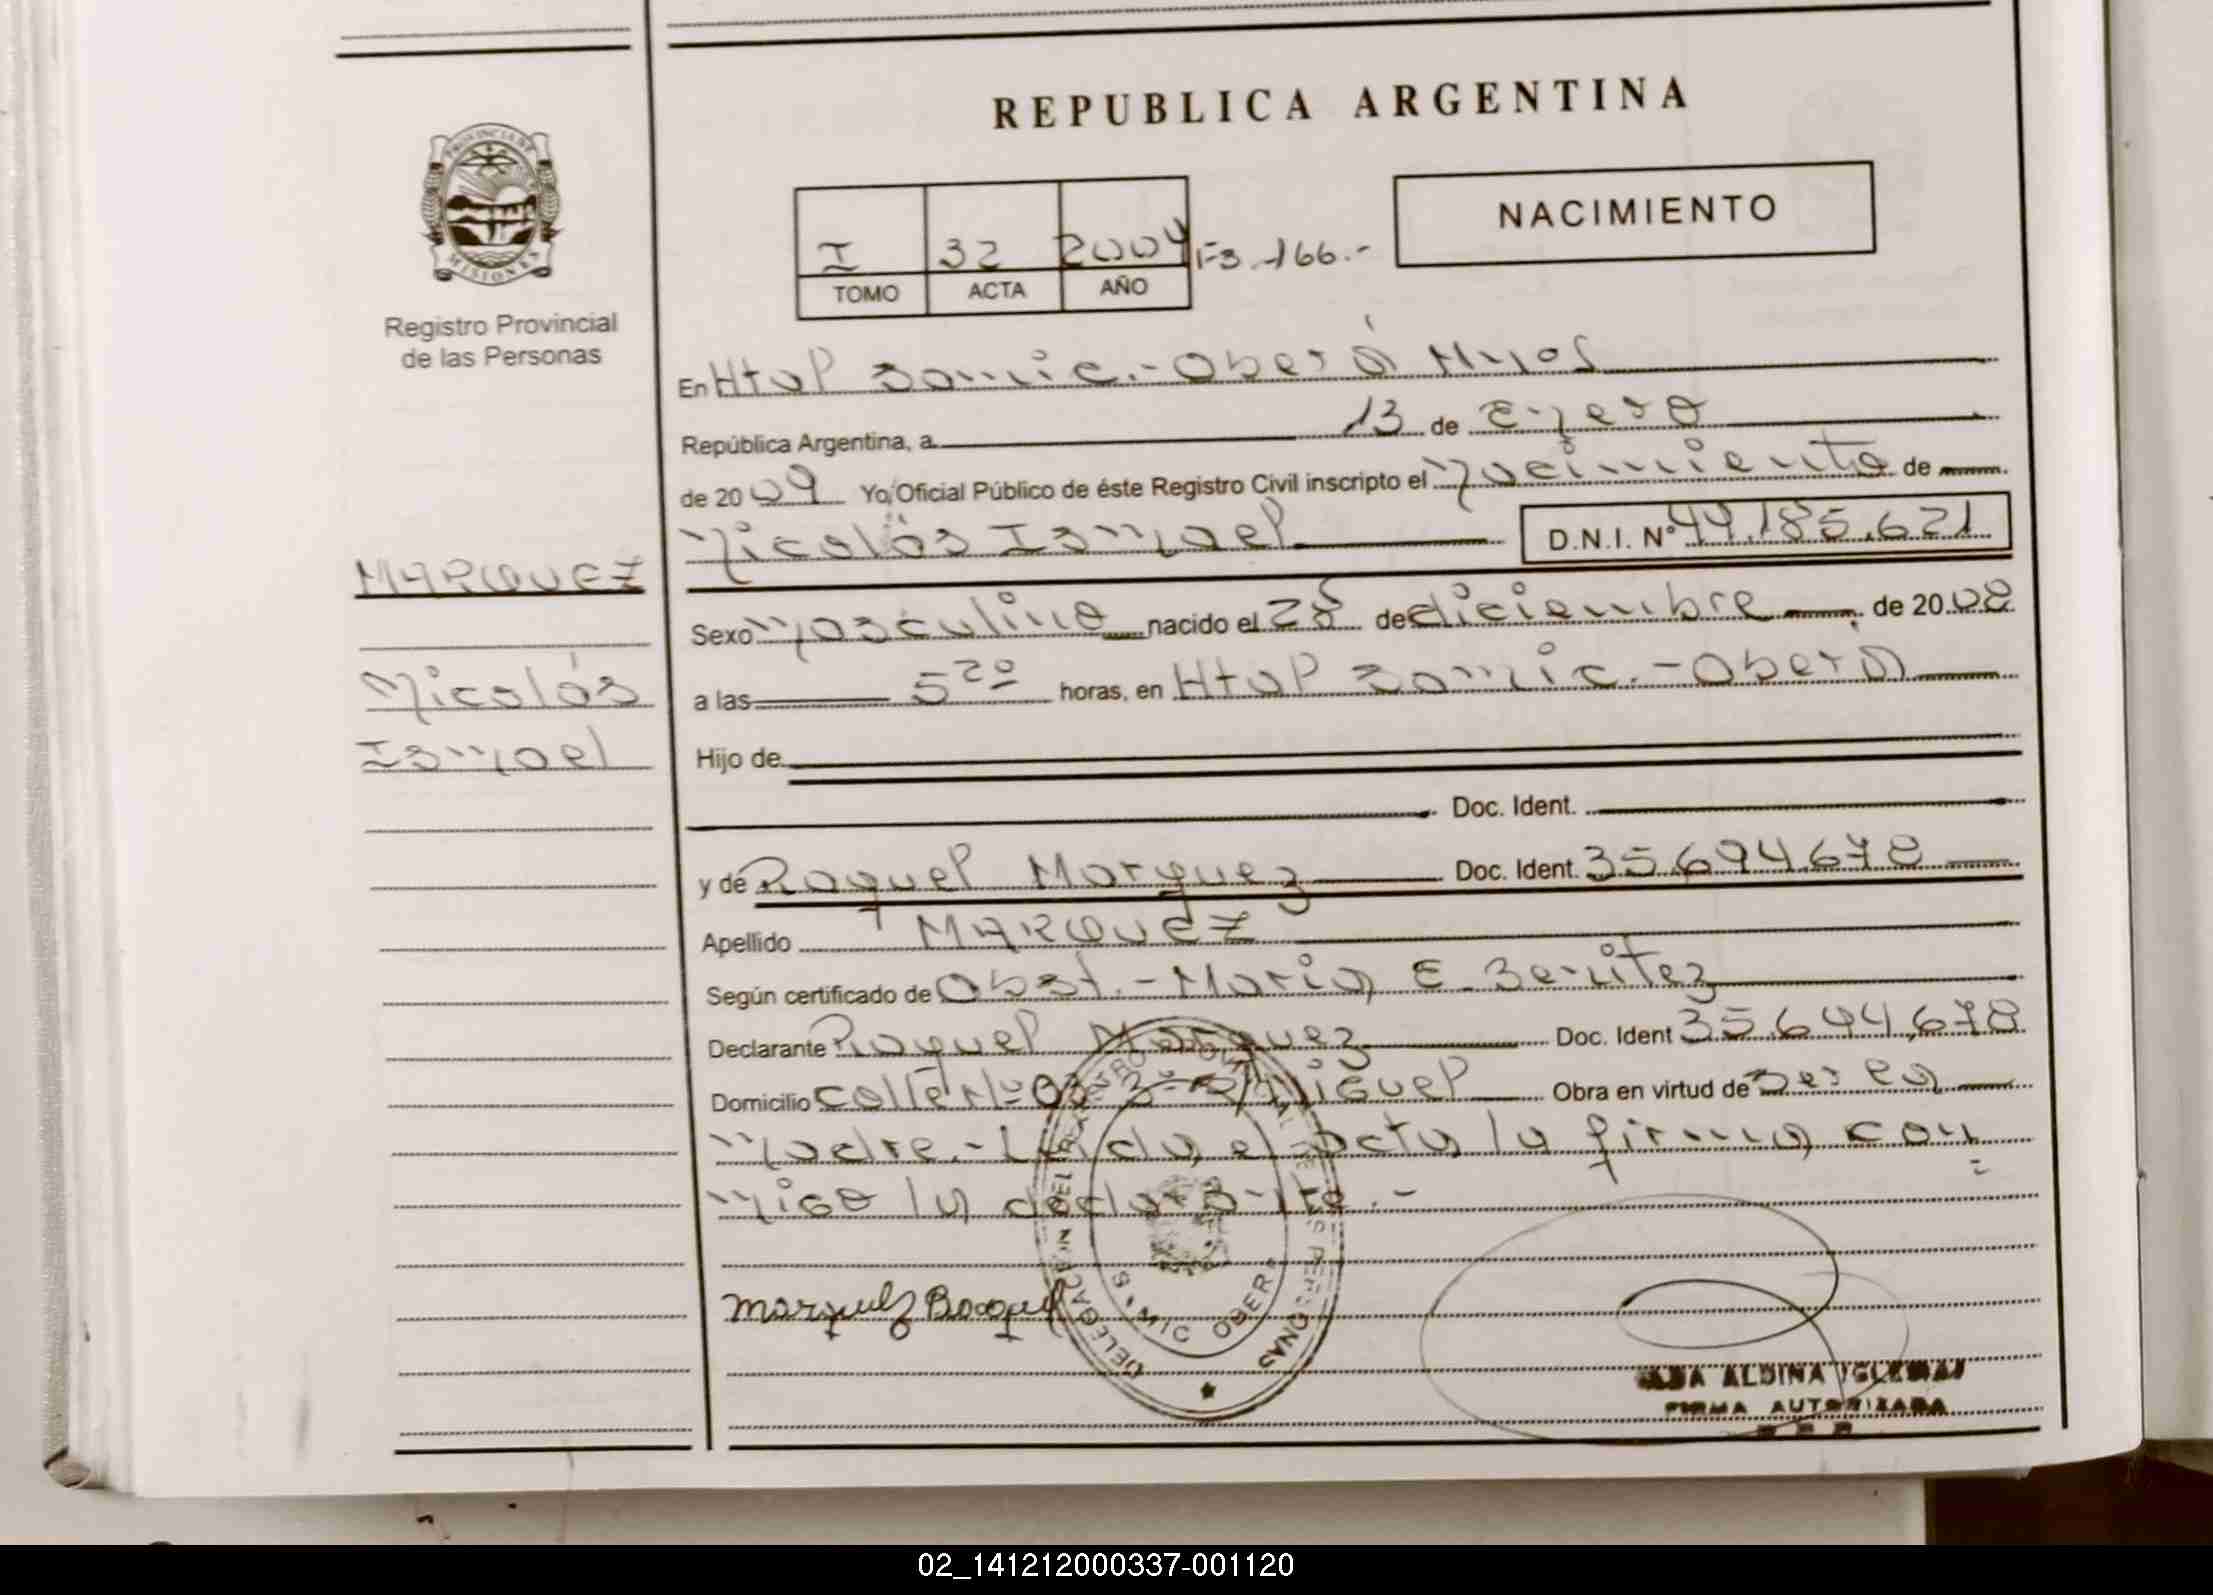 REPUBLICA ARGENTINA
PROVINCIA DE MISIONES
Registro Provincial
de las Personas
NACIMIENTO
I 32 2009 Fº 166.-
TOMO ACTA AÑO
En Htal Samic.- Oberá Mnes
República Argentina, a 13 de Enero
de 2009 Yo, Oficial Público de éste Registro Civil inscripto el nacimiento de
Nicolás Ismael D.N.I. Nº 44.185.621
MARQUEZ
Nicolás
Ismael
Sexo masculino nacido el 28 de diciembre de 2008
a las 5 20 horas, en Htal Samic.- Oberá
Hijo de
Doc. Ident.
y de Raquel Marquez Doc. Ident. 35.694.678
Apellido MARQUEZ
Según certificado de Obst.- Maria E. Benitez
Declarante Raquel Marquez Doc. Ident 35.694.678
Domicilio calle Nº 03 Bº S/Miguel Obra en virtud de ser la
madre.- Leida el acta la firma con
migo la declarante.-
Marquez Raquel
DELEGACION DEL REGISTRO PERSONAS
SAMIC OBERA
ALDINA IGLESIAS
FIRMA AUTORIZADA
02_141212000337-001120